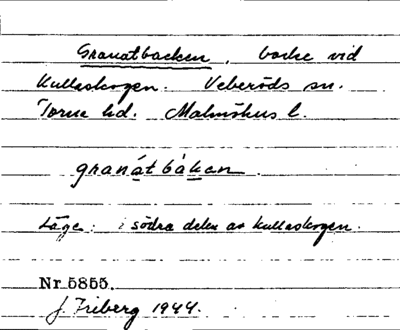 Granatbacken, backe vid
Kullaskogen. Veberöds sn.
Torna hd. Malmöhus l.
granátbàkan.
Läge: i södra delen av Kullaskogen.
Nr 5855.
J. Friberg 1944.